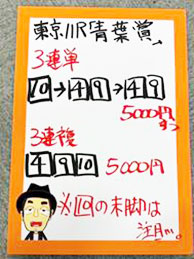 東京11R「青葉賞」
3連単
10→4 9→4 9
5000円
ずつ
3連複
4 9 10 5000円
※⑩の末脚は
注目!!。